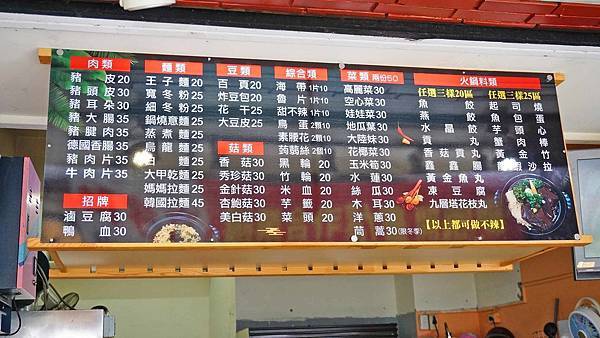 肉類
豬皮20
豬頭皮30
豬耳朵30
豬大腸35
豬腱肉35
德國香腸35
豬肉片35
牛肉片35
招牌
滷豆腐30
鴨血30
麵類
王子麵20
寬冬粉25
細冬粉25
鍋燒意麵25
蒸煮麵25
烏龍麵25
白麵25
大甲乾麵25
媽媽拉麵25
韓國拉麵45
豆類
百頁20
炸豆包20
花干25
大豆皮25
菇類
香菇30
秀珍菇30
金針菇30
杏鮑菇30
美白菇30
綜合類
海帶1片10
魚片1片10
甜不辣1片10
鳥蛋2顆10
素腰花2顆10
蒟蒻絲2個10
黑輪20
竹輪20
米血20
芋籤20
菜頭20
菜類 兩份50
高麗菜30
空心菜30
娃娃菜30
地瓜葉30
大陸妹30
花椰菜30
玉米筍30
水蓮30
絲瓜30
木耳30
洋蔥30
茼蒿30(限冬季)
火鍋料類
任選三樣20區
魚餃
燕餃
水晶餃
貢丸
香菇貢丸
鑫鑫腸
黃金魚丸
凍豆腐
九層塔花枝丸
任選三樣25區
起司燒
魚包蛋
芋頭心
【以上都可做不辣】